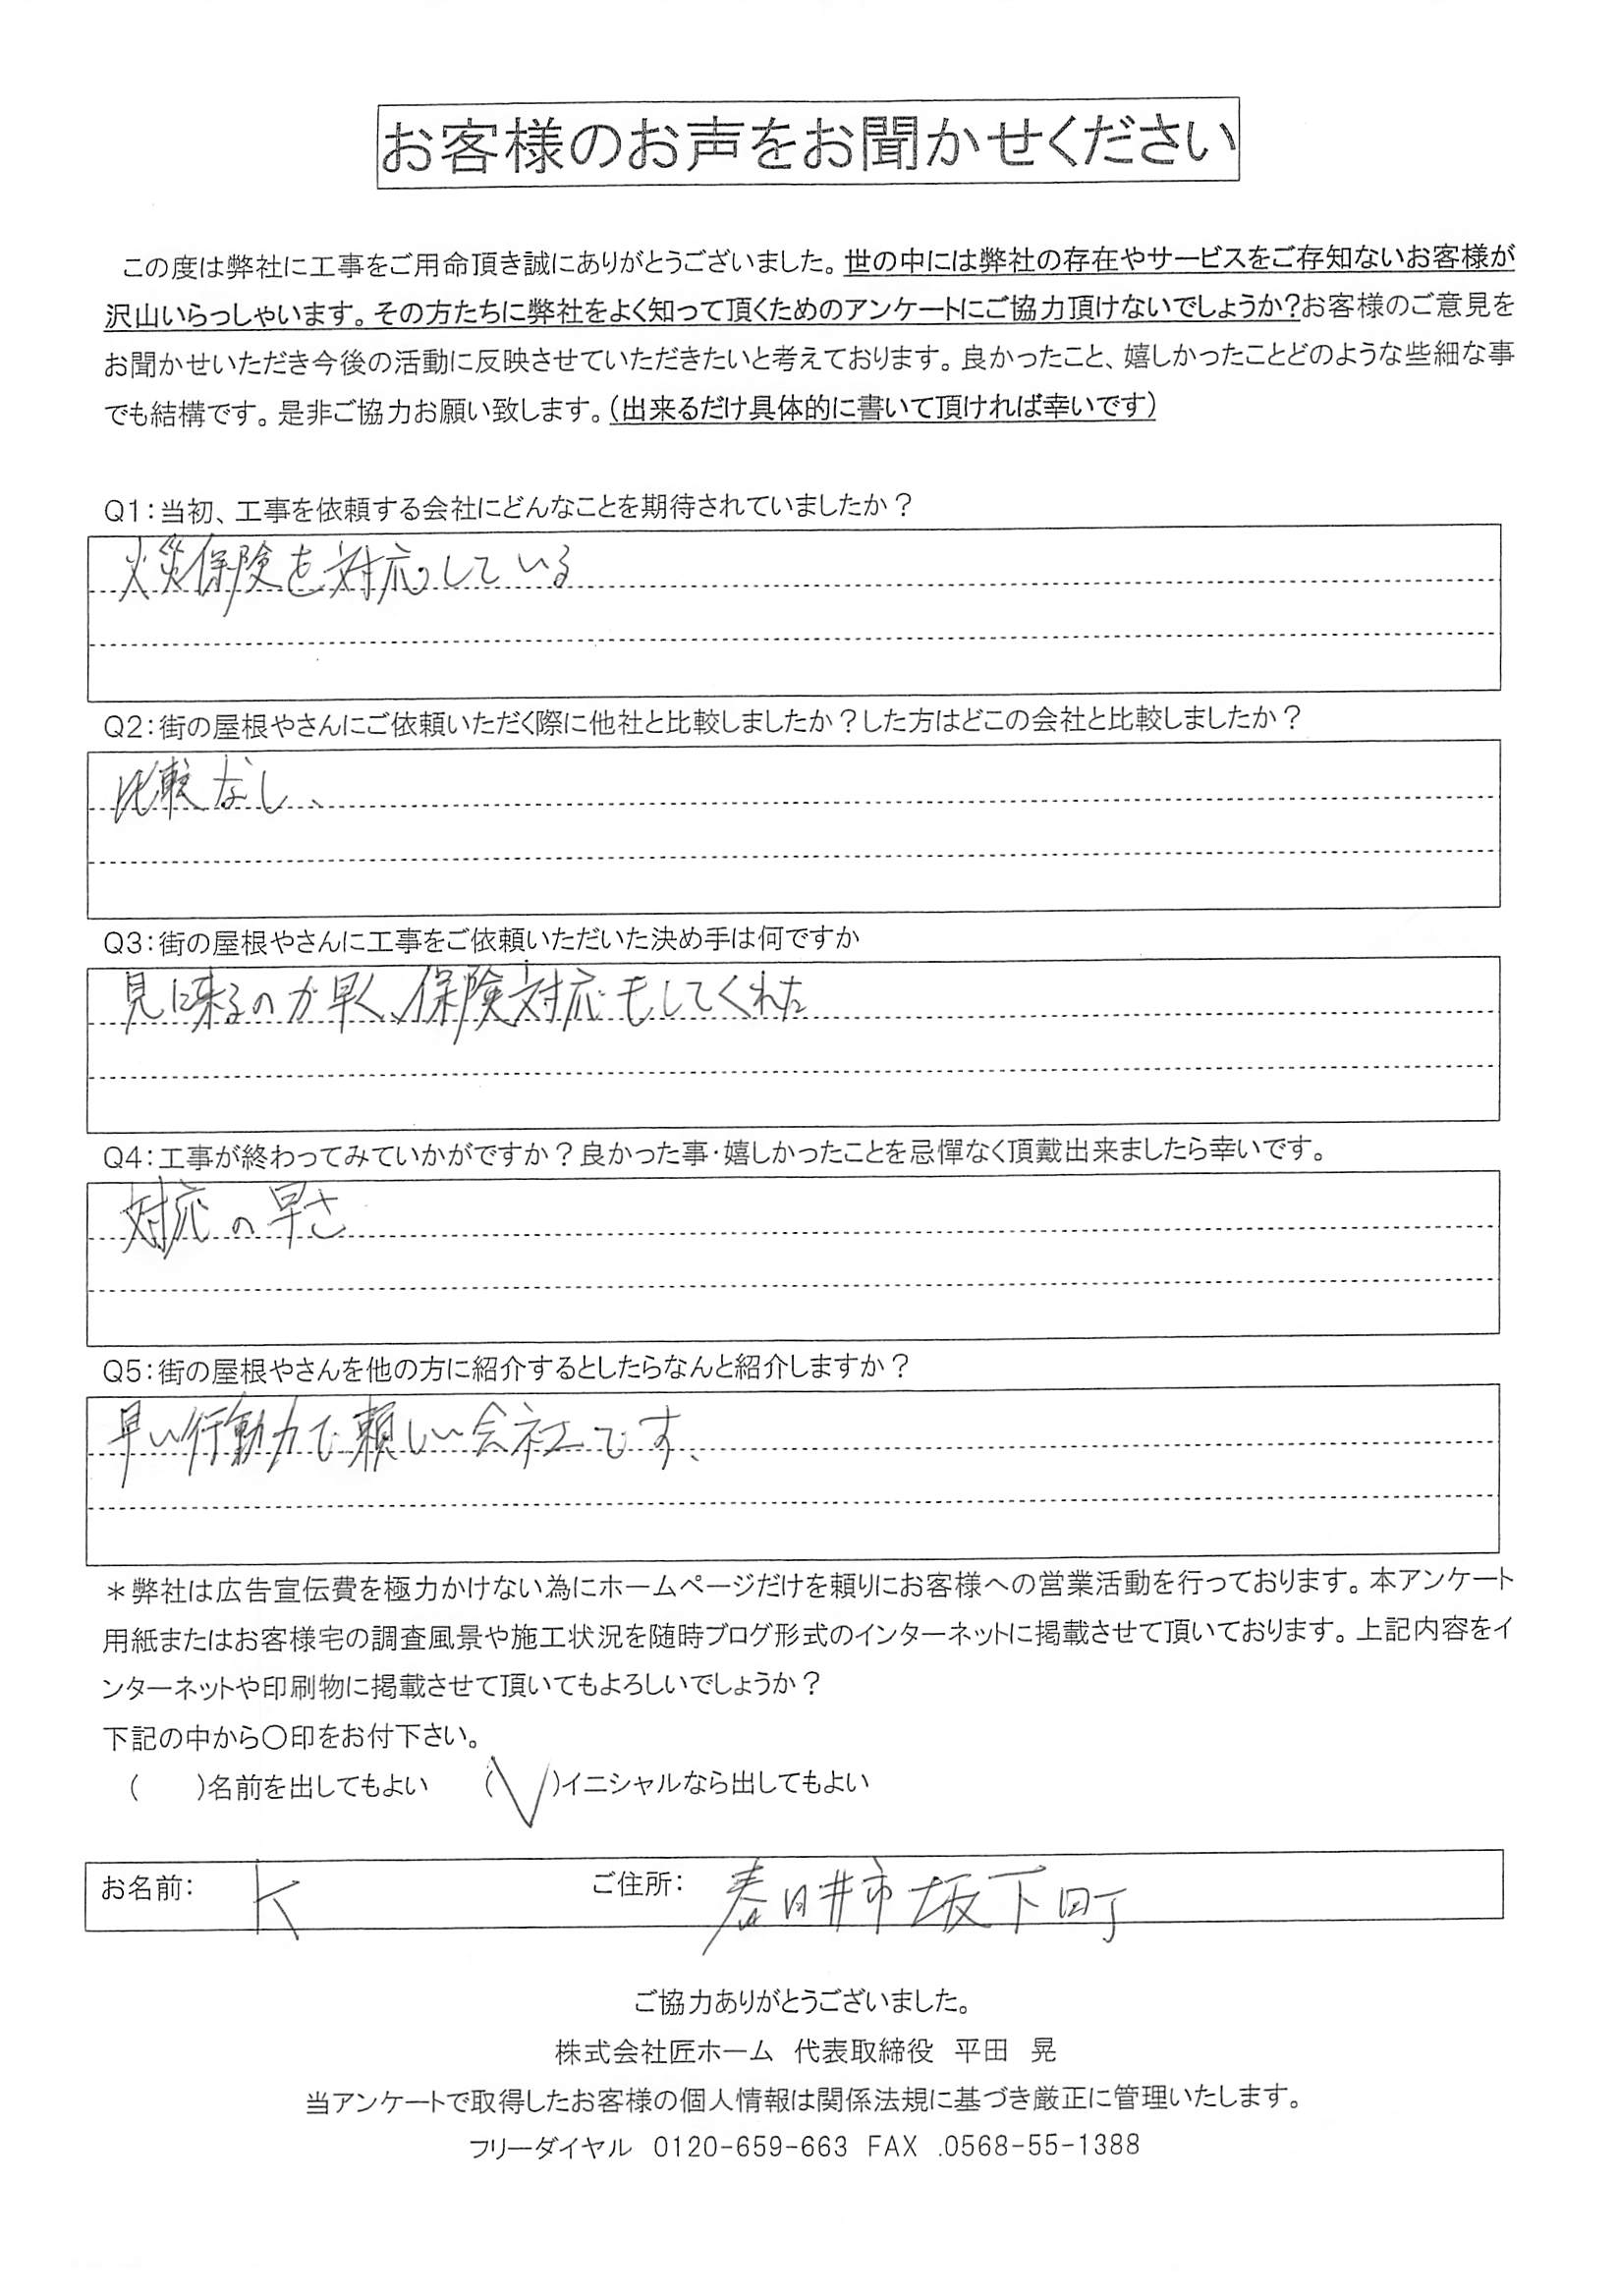 お客様のお声をお聞かせください
この度は弊社に工事をご用命頂き誠にありがとうございました。世の中には弊社の存在やサービスをご存知ないお客様が
沢山いらっしゃいます。その方たちに弊社をよく知って頂くためのアンケートにご協力頂けないでしょうか?お客様のご意見を
お聞かせいただき今後の活動に反映させていただきたいと考えております。良かったこと、嬉しかったことどのような些細な事
でも結構です。是非ご協力お願い致します。(出来るだけ具体的に書いて頂ければ幸いです)
Q1:当初、工事を依頼する会社にどんなことを期待されていましたか?
火災保険を対応している
Q2:街の屋根やさんにご依頼いただく際に他社と比較しましたか?した方はどこの会社と比較しましたか?
比較なし、
Q3:街の屋根やさんに工事をご依頼いただいた決め手は何ですか
見に来るのが早く、保険対応もしてくれた
Q4:工事が終わってみていかがですか?良かった事・嬉しかったことを忌憚なく頂戴出来ましたら幸いです。
対応の早さ
Q5:街の屋根やさんを他の方に紹介するとしたらなんと紹介しますか?
早い行動力で頼しい会社です、
*弊社は広告宣伝費を極力かけない為にホームページだけを頼りにお客様への営業活動を行っております。本アンケート
用紙またはお客様宅の調査風景や施工状況を随時ブログ形式のインターネットに掲載させて頂いております。上記内容をイ
ンターネットや印刷物に掲載させて頂いてもよろしいでしょうか?
下記の中から〇印をお付下さい。
( )名前を出してもよい (✓)イニシャルなら出してもよい
お名前: K ご住所: 春日井市坂下町
ご協力ありがとうございました。
株式会社匠ホーム 代表取締役 平田 晃
当アンケートで取得したお客様の個人情報は関係法規に基づき厳正に管理いたします。
フリーダイヤル 0120-659-663 FAX .0568-55-1388